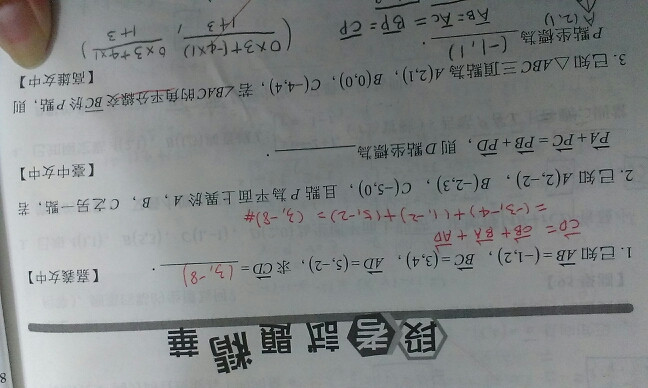 段考試題精華
1. 已知 AB=(-1,2)，BC=(3,4)，AD=(5,-2)，求 CD= (3,-8) 。 【嘉義女中】
CD = CB + BA + AD
=(-3,-4)+(1,-2)+(5,-2) = (3,-8)#
2. 已知 A(2,-2)，B(-2,3)，C(-5,0)，且點 P 為平面上異於 A，B，C 之另一點，若
PA+PC=PB+PD，則 D 點坐標為 。 【臺中女中】
3. 已知 △ABC 三頂點為 A(2,1)，B(0,0)，C(-4,4)，若 ∠BAC 的角平分線交 BC 於 P 點，則
P 點坐標為 (-1,1) 。 【高雄女中】
A(2,1) AB=AC = BP = CP
(0×3+(-4×1)/1+3, 0×3+4×1/1+3)
8